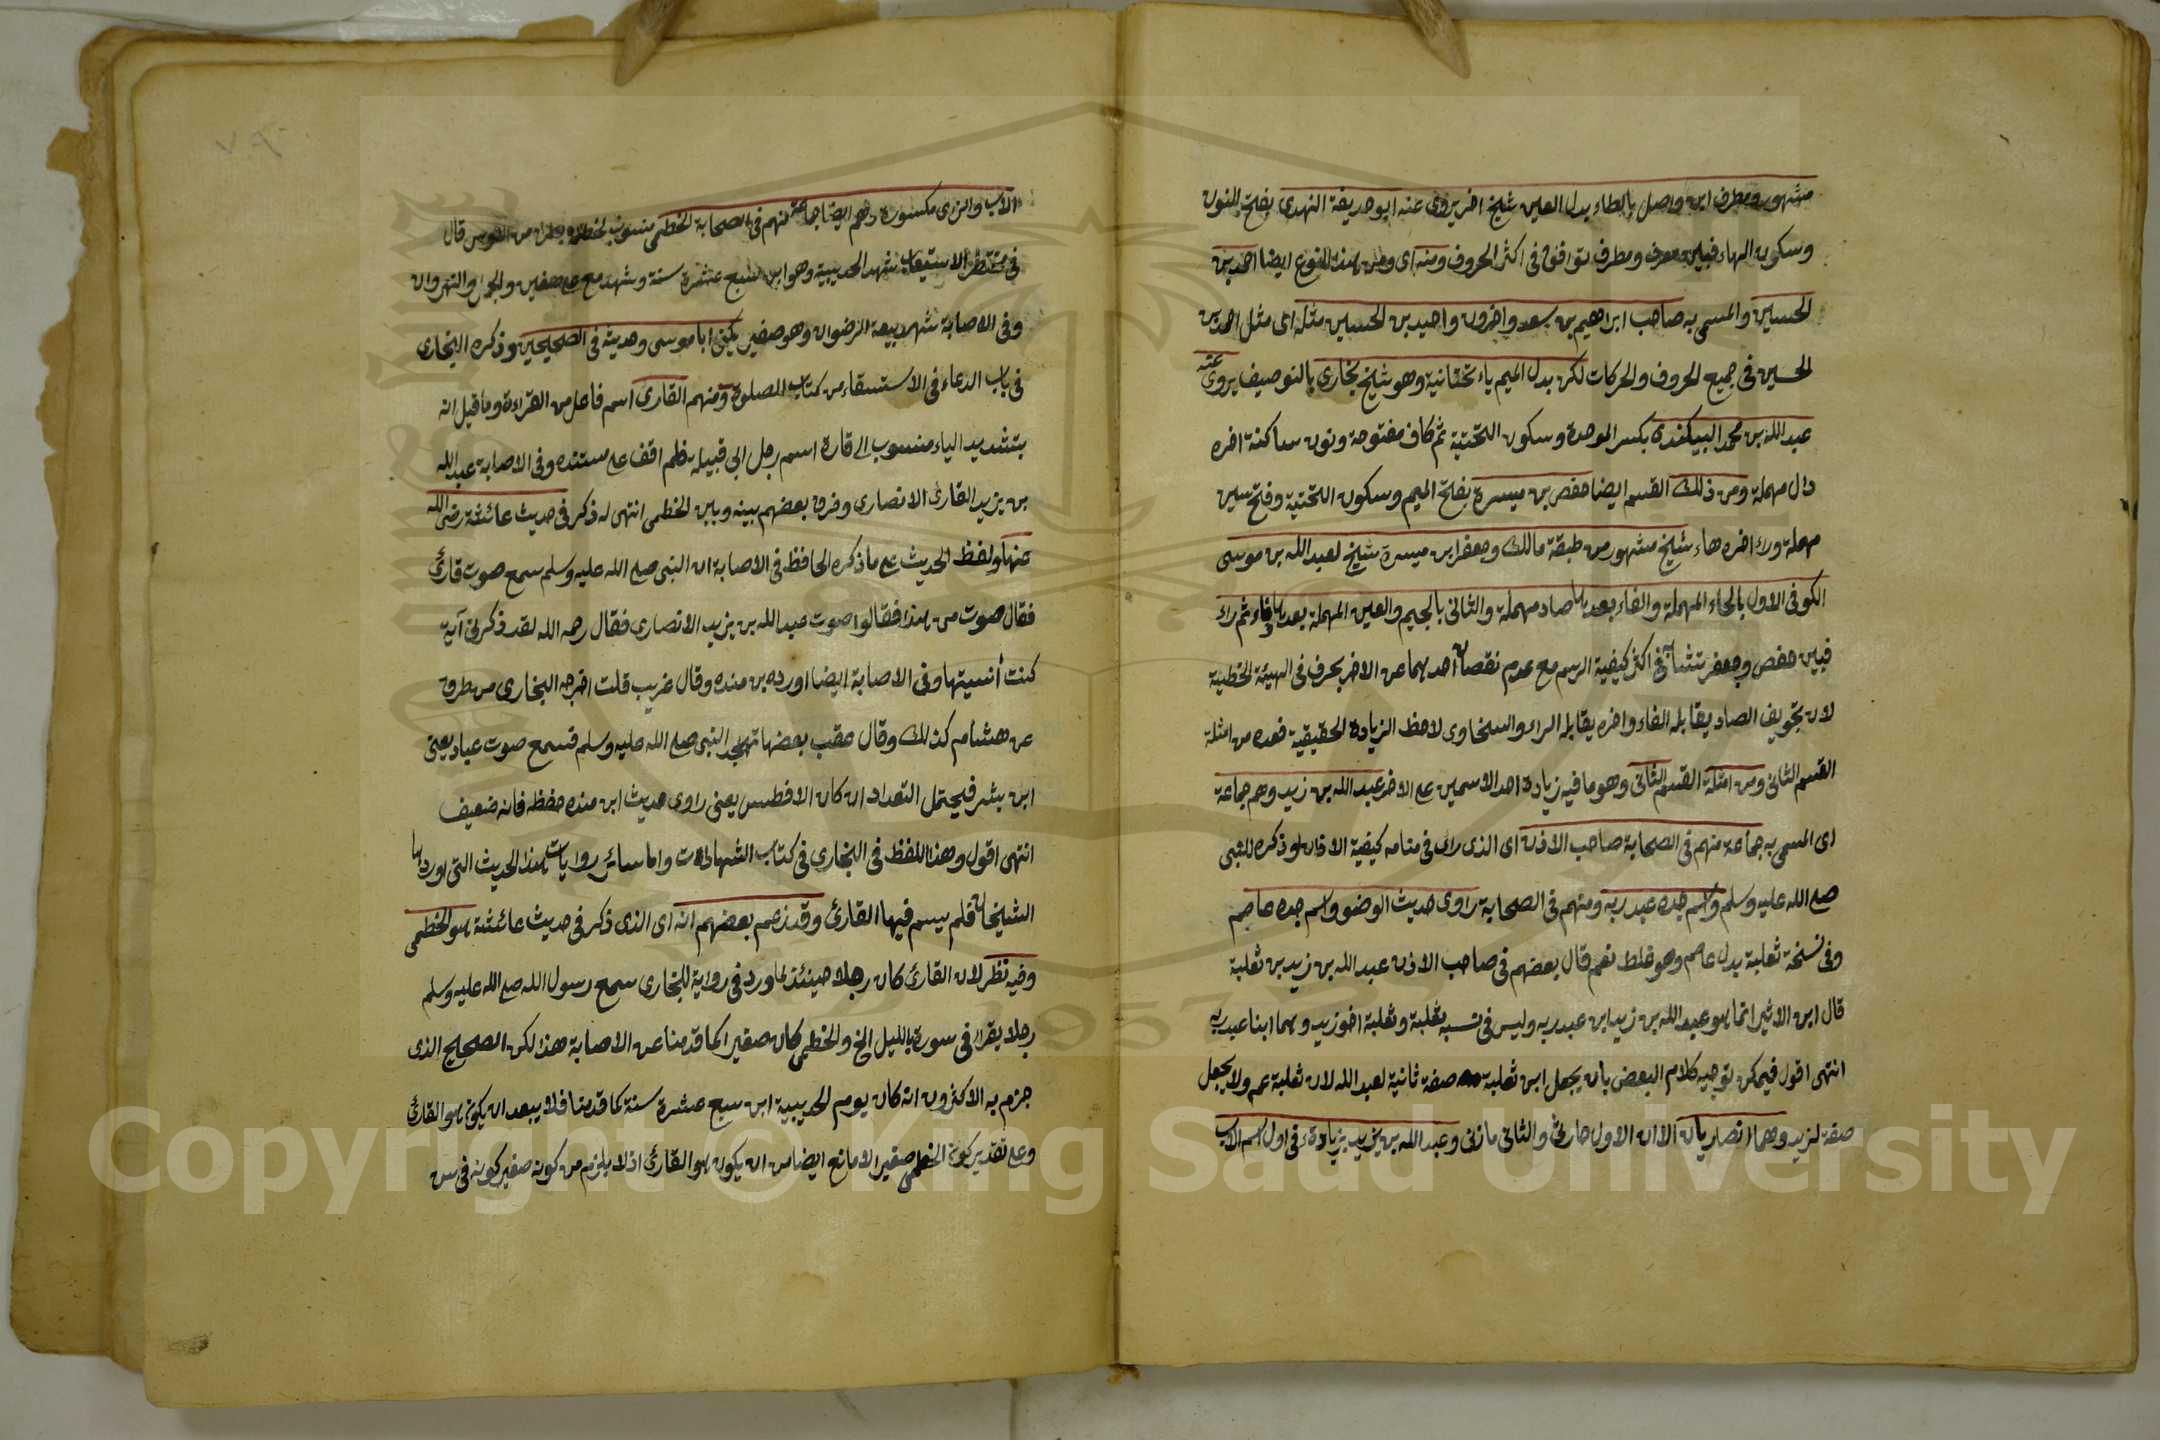 مشهور ومطرف ابن واصل بالطاء بدل العين شيخ اخر يروى عنه ابو حذيفة النهدى بفتح النون
وسكون الهاء فبين معرف ومطرف توافق فى اكثر الحروف ومنه اى ومن هذا النوع ايضا احمد بن
الحسين والمسمى به صاحب ابراهيم بن سعد واخرون واحيد بن الحسين مثله اى مثل احمد بن
الحسين فى جميع الحروف والحركات لكن بدل الميم ياء تحتانية وهو شيخ بخارى بالتوصيف يروى عنه
عبد الله بن محمد البيكندى بكسر الموحدة وسكون التحتية ثم كاف مفتوحة ونون ساكنة اخره
دال مهملة ومن ذلك القسم ايضا حفص بن ميسرة بفتح الميم وسكون التحتية وفتح سين
مهملة وراء اخره هاء شيخ مشهور من طبقة مالك وجعفر ابن ميسرة شيخ لعبد الله بن موسى
الكوفى الاول بالحاء المهملة والفاء بعدها صاد مهملة والثانى بالجيم والعين المهملة بعدها فاء ثم راء
فبين حفص وجعفر تشابه فى اكثر كيفية الرسم مع عدم نقصان احدهما عن الاخر بحرف فى الهيئة الخطية
لان تجويف الصاد يقابله الفاء واخره يقابله الراء والسخاوى لاحظ الزيادة الحقيقية فعده من امثلة
القسم الثانى ومن امثلة القسم الثانى وهو ما فيه زيادة احد الاسمين على الاخر عبد الله بن زيد وهم جماعة
اى المسمى به جماعة منهم فى الصحابة صاحب الاذان اى الذى راى فى منامه كيفية الاذان وذكره للنبى
صلى الله عليه وسلم واسم جده عبد ربه ومنهم فى الصحابة راوى حديث الوضو واسم جده عاصم
وفى نسخة ثعلبة بدل عاصم وهو غلط نعم قال بعضهم فى صاحب الاذان عبد الله بن زيد بن ثعلبة
قال ابن الاثير انما هو عبد الله بن زيد ابن عبد ربه وليس فى نسبه ثعلبة وثعلبة اخو زيد وهما ابنا عبد ربه
انتهى اقول فيمكن توجيه كلام البعض بان يجعل ابن ثعلبة صفة ثانية لعبد الله لان ثعلبة عم ولا يجعل
صفة لزيد وهما انصاريان الا ان الاول حارثى والثانى مازنى وعبد الله بن يزيد بزيادة ء فى اول اسم الاب
الاب والزاى مكسورة وهم ايضا جماعة منهم فى الصحابة الخطمى منسوب لخطمة بطن من الاوس قال
فى مختصر الاستيعاب شهد الحديبية وهو ابن سبع عشرة سنة وشهد مع على صفين والجمل والنهروان
وفى الاصابة شهد بيعة الرضوان وهو صغير يكنى ابا موسى وحديثه فى الصحيحين وذكره البخارى
فى باب الدعاء فى الاستسقاء من كتاب الصلوة ومنهم القارئ اسم فاعل من القراءة وما قيل انه
بتشديد الياء منسوب الى قارة اسم رجل ابى قبيلة فلم اقف على مستنده وفى الاصابة عبد الله
بن يزيد القارئ الانصارى وفرق بعضهم بينه وبين الخطمى انتهى له ذكر فى حديث عائشة رضى الله
عنها ولفظ الحديث على ما ذكره الحافظ فى الاصابة ان النبى صلى الله عليه وسلم سمع صوت قارئ
فقال صوت من هذا فقالوا صوت عبد الله بن يزيد الانصارى فقال رحمه الله لقد ذكرنى آية
كنت أنسيتها وفى الاصابة ايضا اورده بن منده وقال غريب قلت اخرجه البخارى من طرق
عن هشام كذلك وقال عقب بعضها تهجد النبى صلى الله عليه وسلم فسمع صوت عباد يعنى
ابن بشر فيحتمل التعداد ان كان الافطس يعنى راوى حديث ابن منده حفظه فانه ضعيف
انتهى اقول وهذا اللفظ فى البخارى فى كتاب الشهادات واما سائر روايات هذا الحديث التى اوردها
الشيخان فلم يسم فيها القارئ وقد زعم بعضهم انه اى الذى ذكر فى حديث عائشة هو الخطمى
وفيه نظر لان القارئ كان رجلا حينئذ لما ورد فى رواية البخارى سمع رسول الله صلى الله عليه وسلم
رجلا يقرا فى سورة بالليل الخ والخطمى كان صغيرا كما قدمنا عن الاصابة هذا لكن الصحيح الذى
جزم به الاكثرون انه كان يوم الحديبية ابن سبع عشرة سنة كما قدمنا فلا يبعد ان يكون هو القارئ
وعلى تقدير كون الخطمى صغيرا لا مانع ايضا من ان يكون هو القارئ اذ لا يلزم من كونه صغير كونه فى سن
Copyright © King Saud University